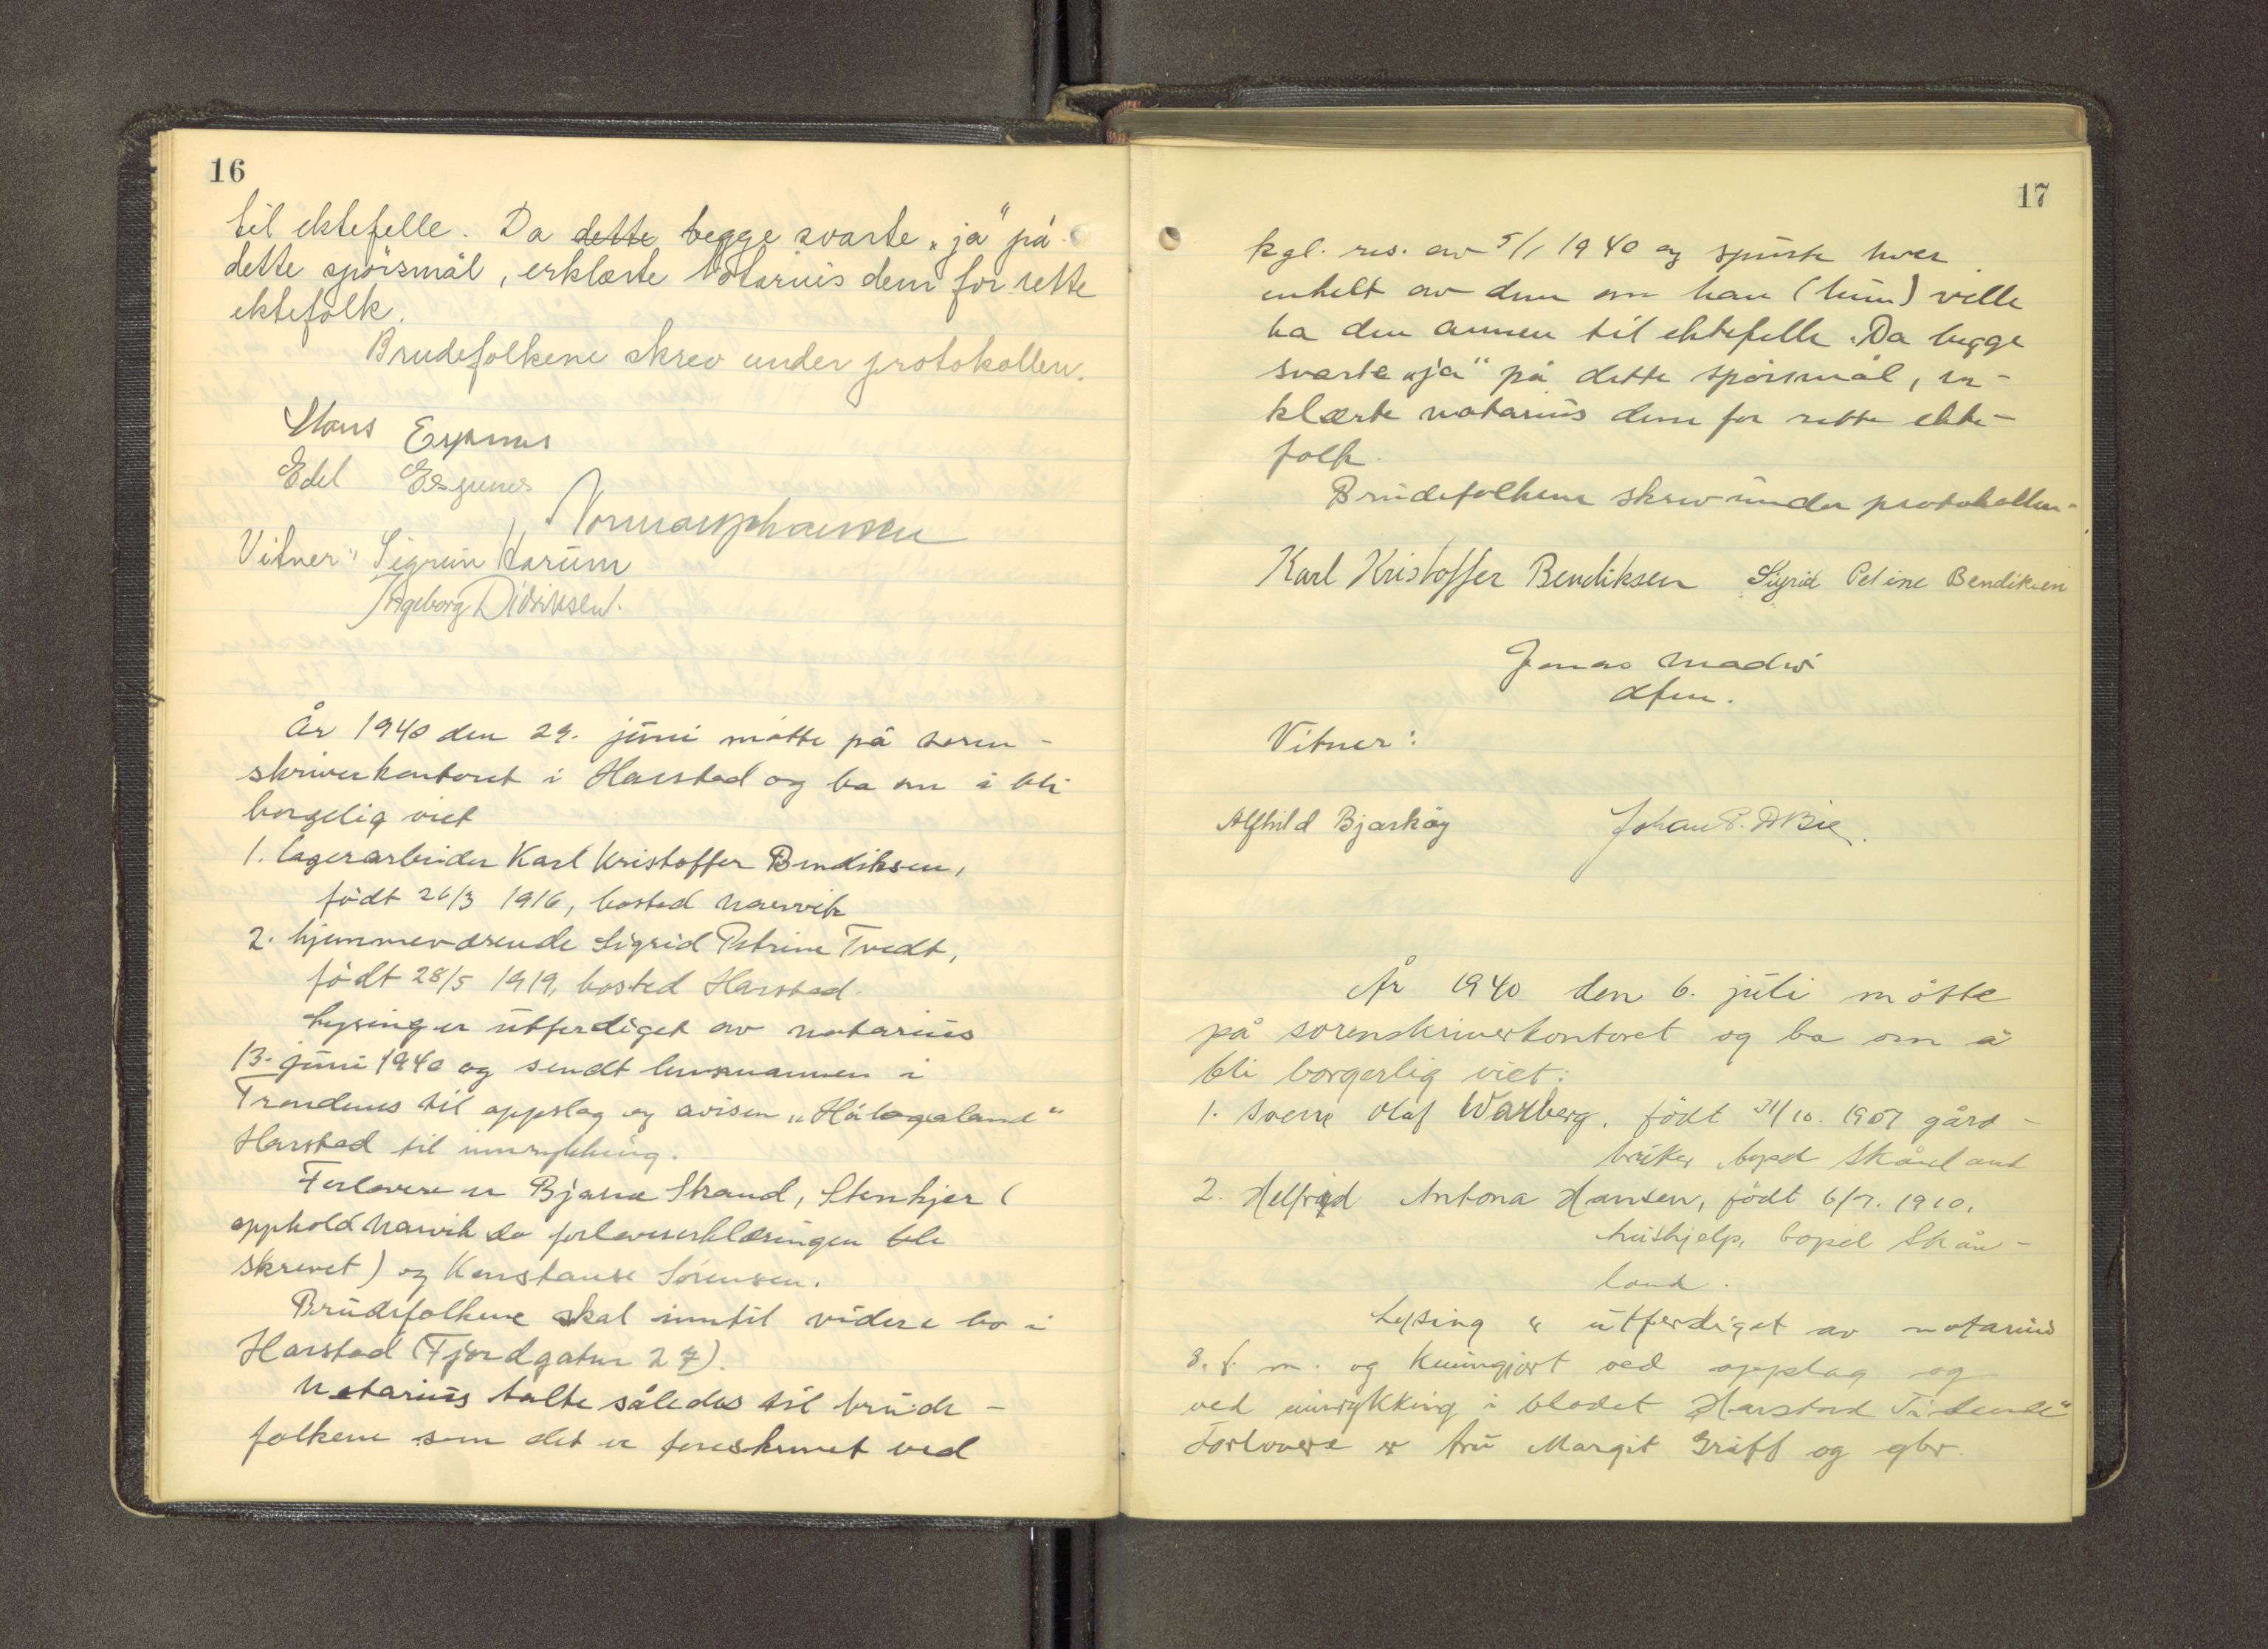 16
til ektefelle. Da dette begge svarte „ja" på
dette spørsmål, erklærte notarius dem for rette
ektefolk.
Brudefolkene skrev under protokollen.
Hans Espenes
Edel Espenes
Vitner: Sigrun Harum
Ageborg Didriksen.
År 1940 den 29. juni møtte på soren-
skriverkontoret i Harstad og ba om å bli
borgelig viet
1. lagerarbeider Karl Kristoffer Bendiksen,
født 26/3 1916, bosted Narvik
2. hjemmeværende Sigrid Petrine Tvedt,
født 28/5 1919, bosted Harstad.
Lysing er utferdiget av notarius
13. juni 1940 og sendt lensmannen i
Trondenes til oppslag og avisen „Hålogaland"
Harstad til innrykking.
Forlovere er Bjarne Strand, Stenkjer (
opphold Narvik da forlovererklæringen ble
skrevet) og Konstanse Sørensen.
Brudefolkene skal inntil videre bo i
Harstad (Fjordgaten 27).
Notarius talte således til brude-
folkene som det er foreskrevet ved
17
kgl. res. av 5/1 1940 og spurte hver
enkelt av dem om han (hun) ville
ha den annen til ektefelle. Da begge
svarte „ja" på dette spørsmål, er-
klærte notarius dem for rette ekte-
folk.
Brudefolkene skrev under protokollen.
Karl Kristoffer Bendiksen Sigrid Petine Bendiksen
Jonas
dfm.
Vitner:
Alfhild Bjarkøy Johan
År 1940 den 6. juli møtte
på sorenskriverkontoret og ba om å
bli borgerlig viet:
1. Sverre Olaf Warberg, født 31/10. 1907 gård-
bruker, bopel Skånland
2. Helfrid Antona Hansen, født 6/7. 1910,
hushjelp, bopel Skån-
land.
Lysing er utferdiget av notarius
3. f. m. og kunngjort ved oppslag og
ved innrykking i bladet Harstad Tidende"
Forlovere er fru Margit Greff og gbr.